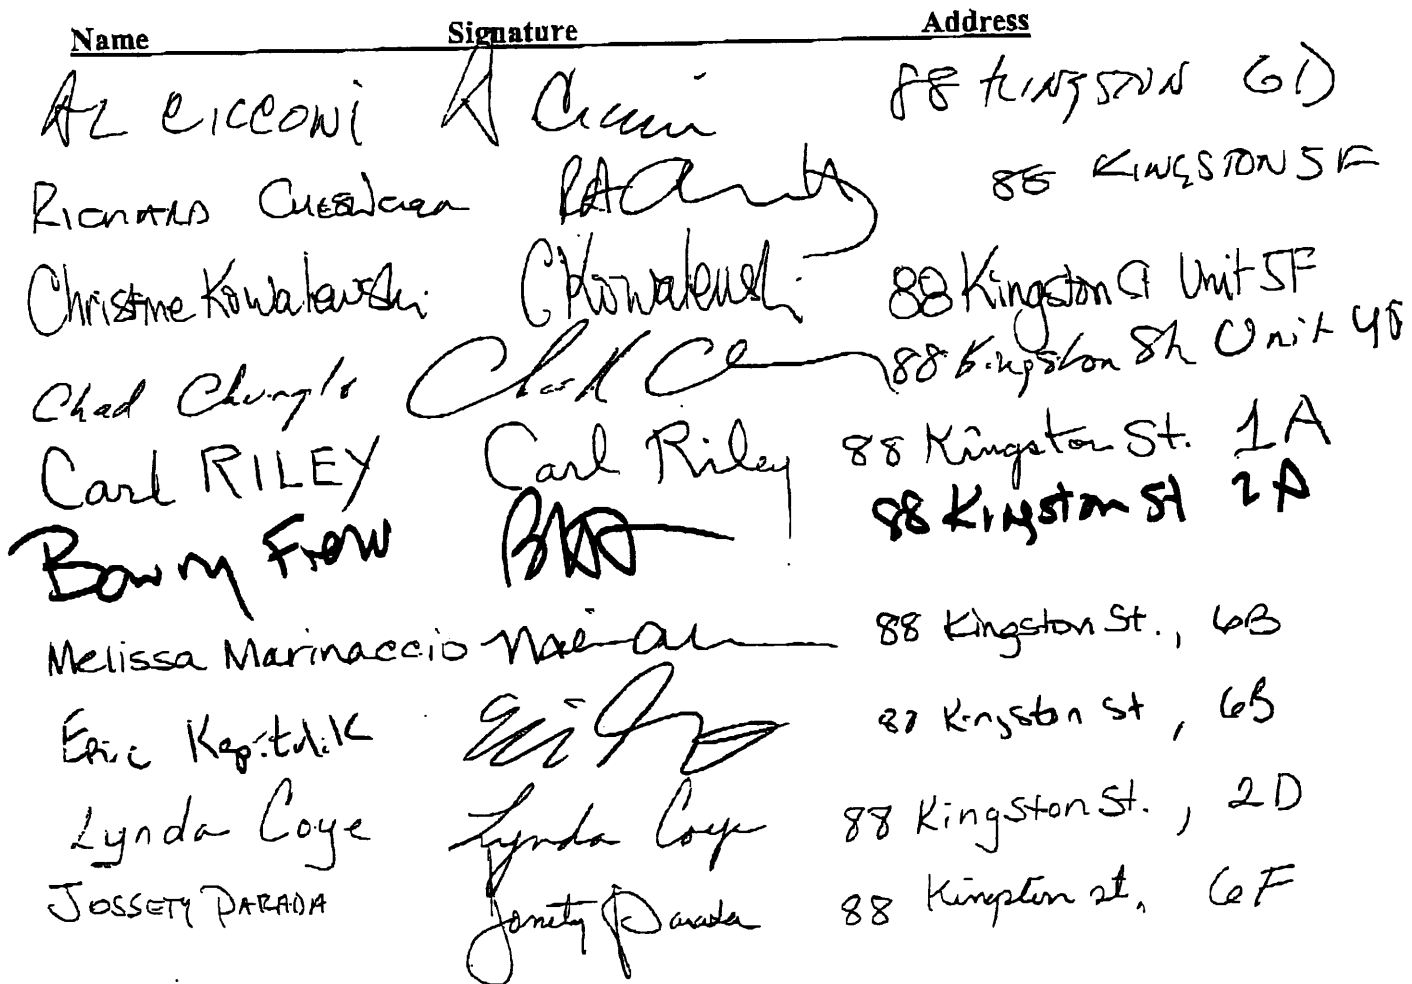 Name Signature Address
AL CICCONI A Cicconi 88 KINGSTON 6D
RICHARD 88 KINGSTON 5F
Christine Kowalewski CKowalewski 88 Kingston St Unit 5F
Chad Chad 88 Kingston St Unit
Carl RILEY Carl Riley 88 Kingston St. 1A
88 Kingston St 2A
Melissa Marinaccio 88 Kingston St., 6B
Eric Kapitulik Eric 88 Kingston St, 6B
Lynda Coye Lynda Coye 88 Kingston St., 2D
JOSSETY PARADA Jossety Parada 88 Kingston st, 6F